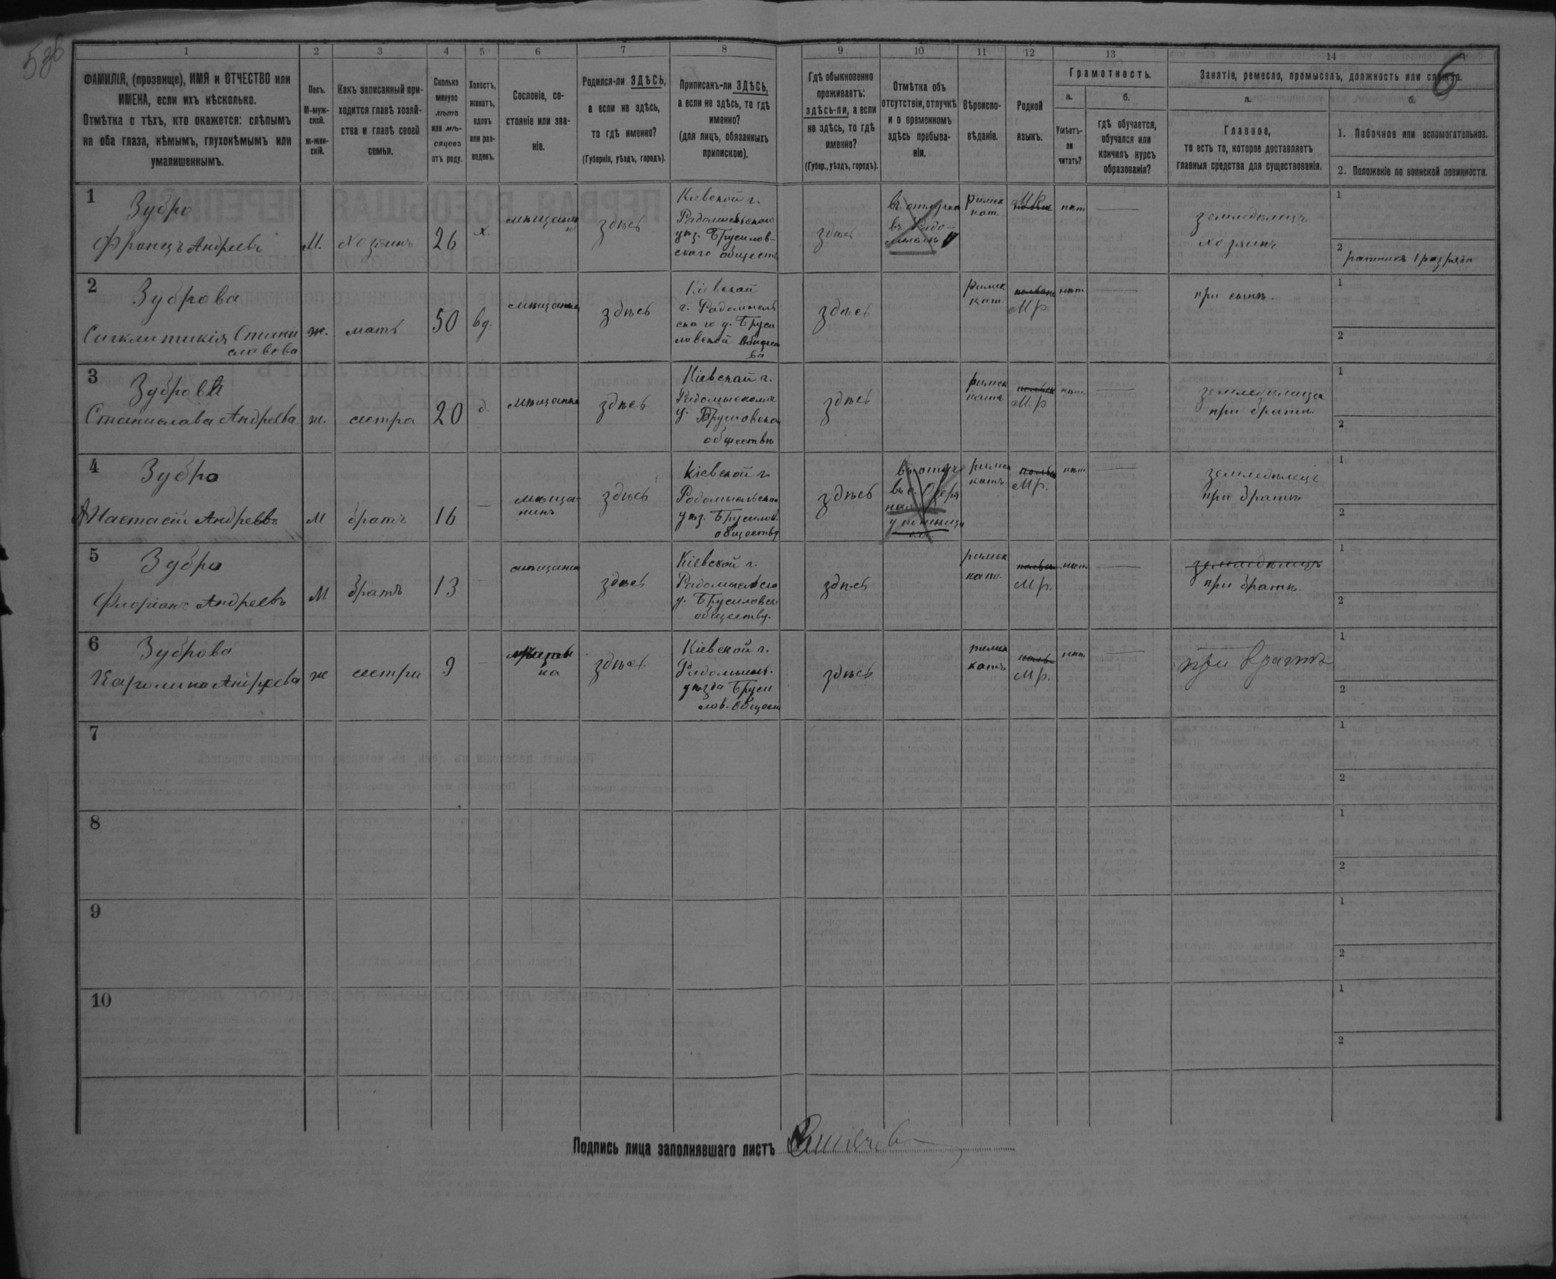 536
6
1 2 3 4 5 6 7 8 9 10 11 12 13 14
ФАМИЛІЯ, (прозвище), ИМЯ и ОТЧЕСТВО или
ИМЕНА, если ихъ нѣсколько.
Отмѣтка о тѣхъ, кто окажется: слѣпымъ
на оба глаза, нѣмымъ, глухонѣмымъ или
умалишеннымъ.
Полъ.
М-муж-
ской.
ж-жен-
скій.
Какъ записанный при-
ходится главѣ хозяй-
ства и главѣ своей
семьи.
Сколько
минуло
лѣтъ
или мѣ-
сяцевъ
отъ роду.
Холостъ,
женатъ,
вдовъ
или раз-
веденъ.
Сословіе, со-
стояніе или зва-
ніе.
Родился-ли ЗДѢСЬ,
а если не здѣсь,
то гдѣ именно?
(Губернія, уѣздъ, городъ).
Приписанъ-ли ЗДѢСЬ,
а если не здѣсь, то гдѣ
именно?
(для лицъ, обязанныхъ
припискою).
Гдѣ обыкновенно
проживаетъ:
здѣсь-ли, а если
не здѣсь, то гдѣ
именно?
(Губер., уѣздъ, городъ).
Отмѣтка объ
отсутствіи, отлучкѣ
и о временномъ
здѣсь пребыва-
ніи.
Вѣроиспо-
вѣданіе.
Родной
языкъ.
Грамотность.
а.
Умѣетъ-
ли
читать?
б.
гдѣ обучается,
обучался или
кончилъ курсъ
образованія?
Занятіе, ремесло, промыселъ, должность или служба.
а.
Главное,
то есть то, которое доставляетъ
главныя средства для существованія.
б.
1. Побочное или вспомогательное.
2. Положеніе по воинской повинности.
1
Зубро
Францъ Андреевъ
М.
хозяинъ
26
х.
здѣсь
Кіевской г.
Радомысльского
уѣз. Брусилов-
ского обществ
здѣсь
римск
кат.
М.Р.
нѣт
земледѣлецъ
хозяинъ
1
2
ратникъ 1 разряда
2
Зуброва
ж.
мать
50
вд.
мѣщанка
здѣсь
Кіевской
г. Радомысль
здѣсь
римск
кат
М.р.
нѣт
при сынѣ.
1
2
3
Станислава Андреева
ж.
сестра
20
д.
мѣщанка
здѣсь
Кіевской г.
здѣсь
М.р
нѣт
при братѣ
1
2
4
Зубро
Андреевъ
М
братъ
16
мѣща-
нинъ
здѣсь
Кіевской г.
Радомысльского
уѣз. Брусилов.
обществу
здѣсь
М.р.
нѣт
земледѣлецъ
при братѣ
1
2
5
Зубро
Флоріанъ Андреевъ
М
братъ
13
здѣсь
Кіевской г.
у. Брусиловск
обществу.
здѣсь
римск
кат.
М.р.
нѣт.
земледѣлецъ
при братѣ.
1
2
6
Зуброва
Каролина Андреева
ж
сестра
9
здѣсь
Кіевской г.
Радомысль.
уѣзда Бруси
лов. общест
здѣсь
катъ
М.р.
нѣт
при братѣ
1
2
7
1
2
8
1
2
9
1
2
10
1
2
Подпись лица заполнявшаго листъ